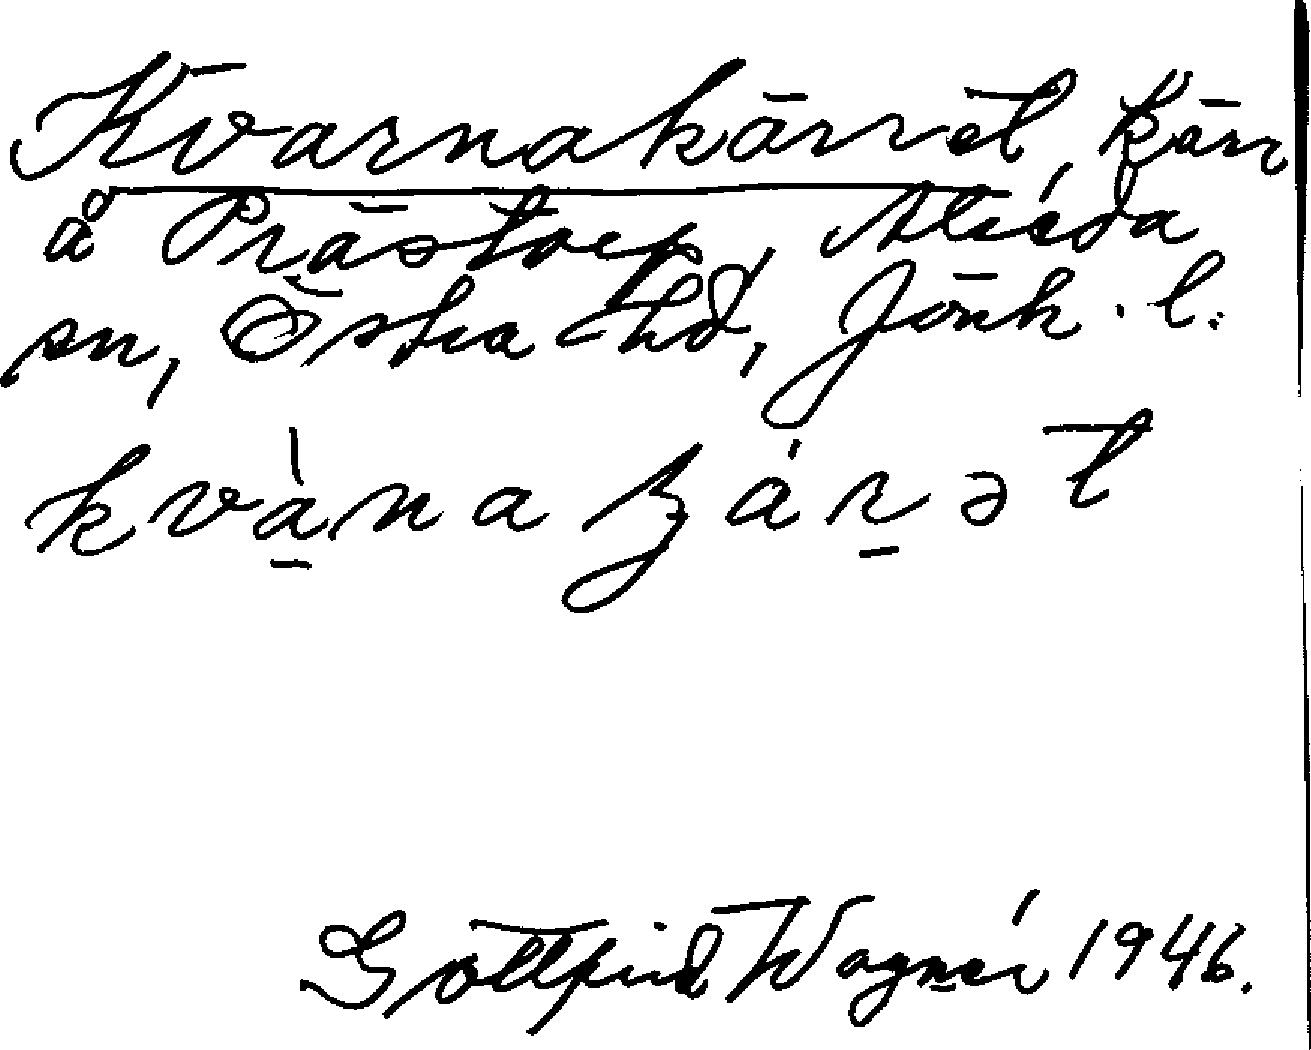 Kvarnakärret, Kärr
å Prästorp, Alseda
sn, Östra hd, Jönk. l.
kvànaʒárət
Gottfrid Wagnér 1946.